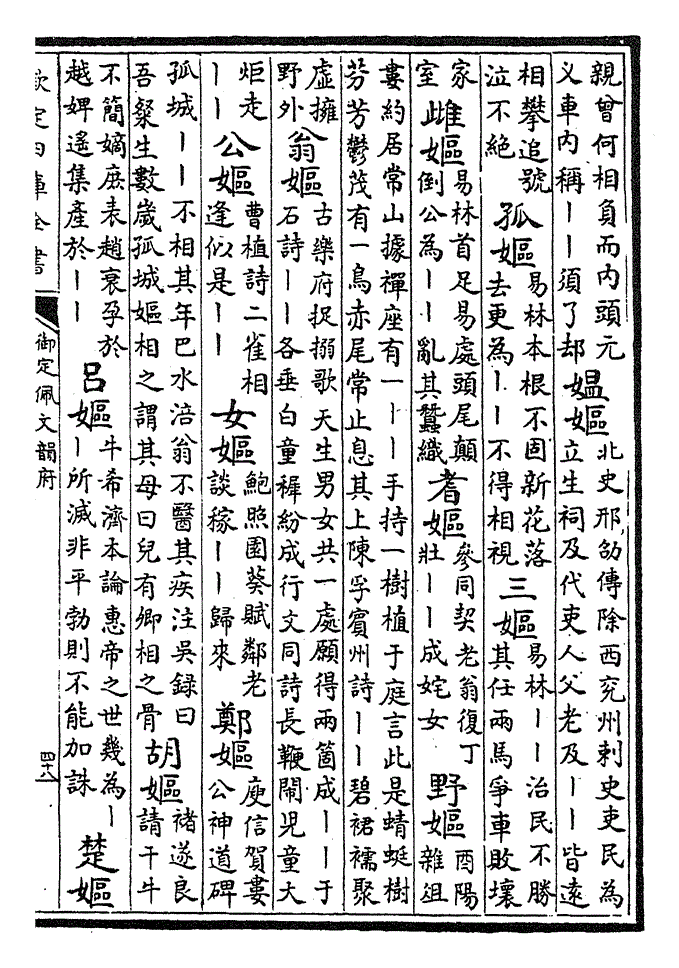 親曾何相負而内頭元
乂車内稱｜｜須了却
媪嫗
北史邢劭傳除西兖州刺史吏民為
立生祠及代吏人父老及｜｜皆遠
相攀追號
泣不絶
孤嫗
易林本根不固新花落
去更為｜｜不得相視
三嫗
易林｜｜治民不勝
其任兩馬爭車敗壞
家
室
雌嫗
易林首足易處頭尾顛
倒公為｜｜亂其蠶織
耆嫗
參同契老翁復丁
壯｜｜成姹女
野嫗
酉陽
雜俎
婁約居常山據禪座有一｜｜手持一樹植于庭言此是蜻蜓樹
芬芳鬱茂有一鳥赤尾常止息其上陳孚賓州詩｜｜碧裙襦聚
虚擁
野外
翁嫗
古樂府捉搦歌天生男女共一處願得兩箇成｜｜于
石詩｜｜各垂白童穉紛成行文同詩長鞭鬧児童大
炬走
｜｜
公嫗
曹植詩二雀相
逢似是｜｜
女嫗
鮑照園葵賦鄰老
談稼｜｜歸來
鄭嫗
庾信賀婁
公神道碑
孤城｜｜不相其年巴水涪翁不醫其疾注吳録曰
吾粲生數歲孤城嫗相之謂其母曰兒有卿相之骨
胡嫗
禇遂良
請千牛
不簡嫡庶表趙衰孕於
越婢遥集產於｜｜
吕嫗
牛希濟本論惠帝之世幾為｜
｜所滅非平勃則不能加誅
楚嫗
欽定四庫全書
御定佩文韻府
四十八